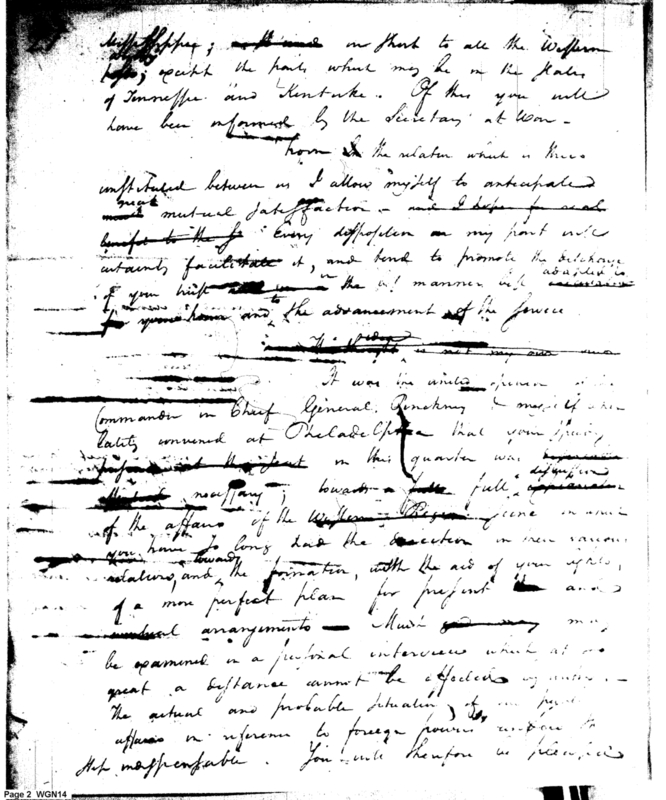 Mississippi; in short to all the Western
posts; except the posts which may be in the States
of Tennessee and Kentucke. Of this you will
have been informed by the Secretary at War –
From the relation which is thus
constituted between us I allow myself to anticipate
great mutual satisfaction – and I hope for real
benefit to the Every disposition on my part will
certainly facilitate it, and tend to promote the discharge
of your trust in the manner best adapted to
your honor and to the advancement of the service
is not my own
It was the united opinion of the
Commander in Chief General Pinckney & myself when
lately convened at Philadelphia that your
in this quarter was
necessary; towards a full discussion
of the affairs of the Western scene in which
you have so long had the direction in their various
relations, and towards the formation, with the aid of your lights,
of a more perfect plan for present and
eventual arrangements – Much may
be examined in a personal interview which at so
great a distance cannot be effected
The actual and probable situation of our public
affairs in reference to foreign powers renders this
step indispensable. You will therefore be pleased
Page 2 WGN14